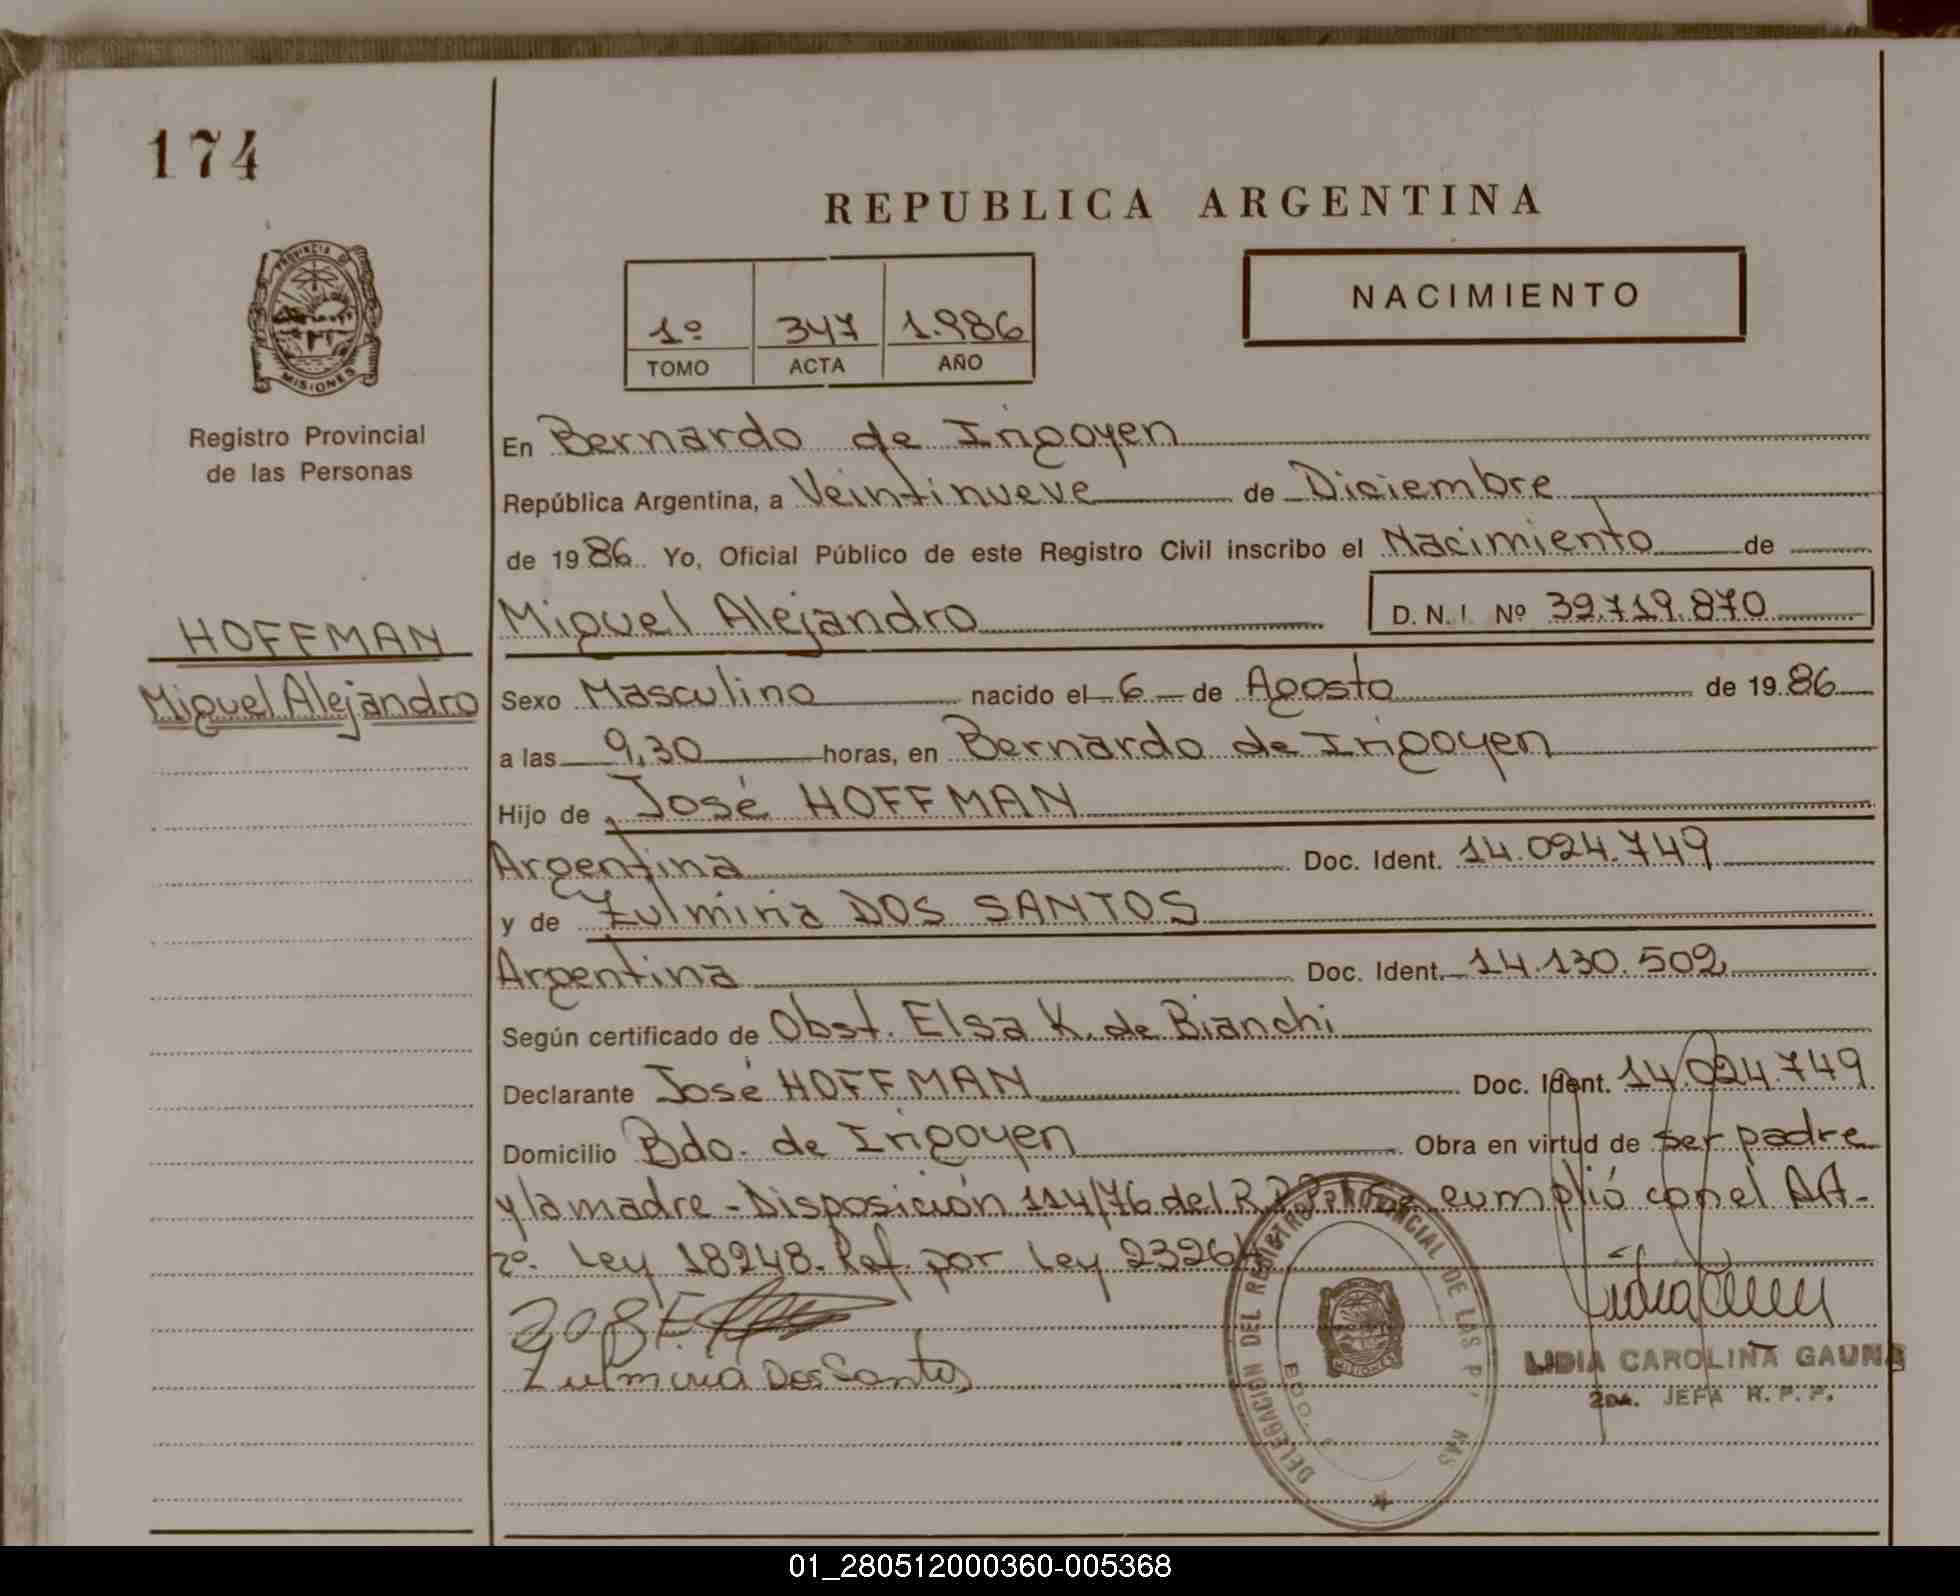 174
REPUBLICA ARGENTINA
PROVINCIA D
MISIONES
1º 347 1.986
TOMO ACTA AÑO
NACIMIENTO
Registro Provincial
de las Personas
HOFFMAN
Miguel Alejandro
En Bernardo de Irigoyen
República Argentina, a Veintinueve de Diciembre
de 1986. Yo, Oficial Público de este Registro Civil inscribo el Nacimiento de
Miguel Alejandro D.N.I. Nº 39.719.870
Sexo Masculino nacido el 6 de Agosto de 1986
a las 9,30 horas, en Bernardo de Irigoyen
Hijo de José HOFFMAN
Argentina Doc. Ident. 14.024.749
y de Zulmiria DOS SANTOS
Argentina Doc. Ident. 14.130.502
Según certificado de Obst. Elsa K. de Bianchi
Declarante José HOFFMAN Doc. Ident. 14.024.749
Domicilio Bdo. de Irigoyen Obra en virtud de ser padre
y la madre - Disposición 114/76 del R.P.P. Se cumplió con el
2º. Ley 18248. Ref. por Ley 23264
Zulmiria Dos Santos
DELEGACION DEL REGISTRO PROVINCIAL DE LAS P NAS
MISIONES
LIDIA CAROLINA GAUNA
2DA. JEFA R. P. P.
01_280512000360-005368